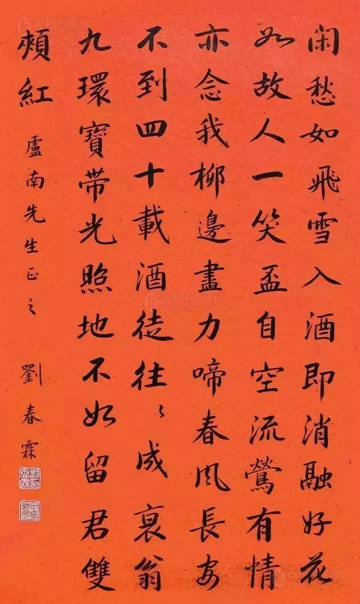 閑愁如飛雪入酒即消融好花
如故人一笑盃自空流鶯有情
亦念我柳邊盡力啼春風長安
不到四十載酒徒往〻成衰翁
九環寶带光照地不如留君雙
頰紅
盧南先生正之
劉春霖